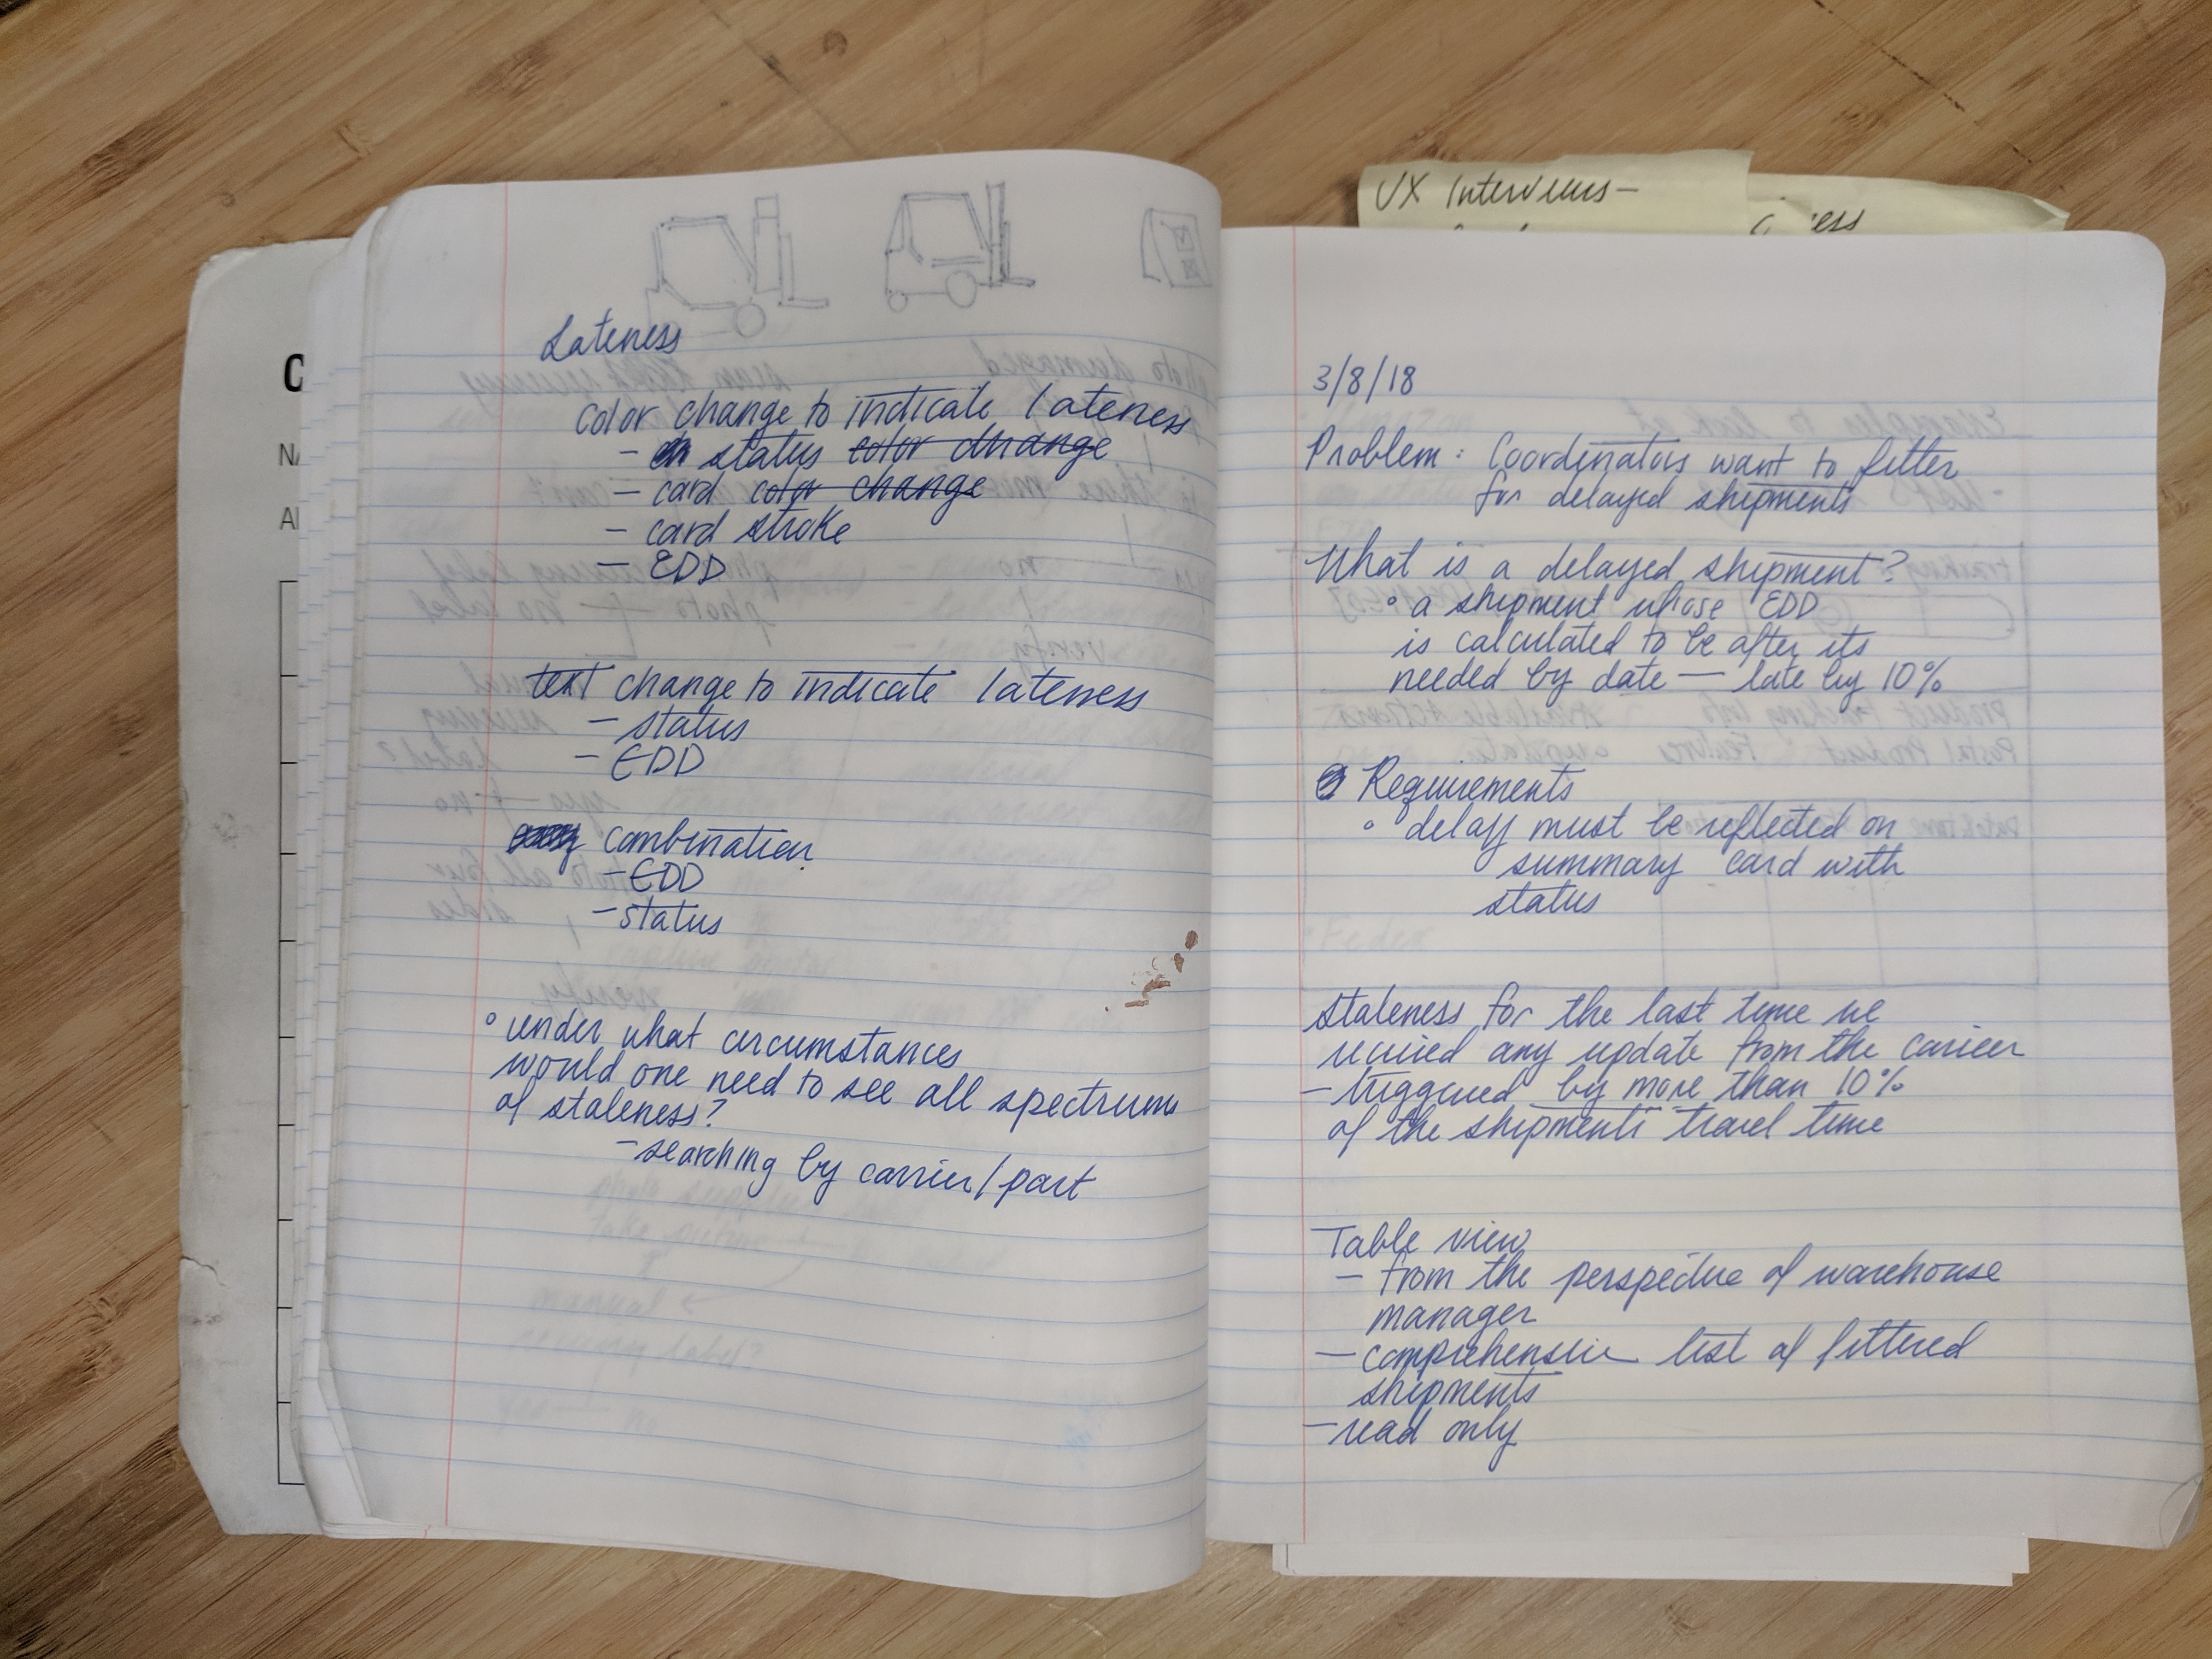 Lateness
Color change to indicate lateness
- status color change
- card color change
- card stroke
- EDD
text change to indicate lateness
- status
- EDD
combination
- EDD
- status
° under what circumstances
would one need to see all spectrums
of staleness?
- searching by carrier/part
UX Interviews -
3/8/18
Problem: Coordinators want to filter
for delayed shipments
What is a delayed shipment?
° a shipment whose EDD
is calculated to be after its
needed by date — late by 10%
Requirements
° delay must be reflected on
summary card with
status
Staleness for the last time we
recieved any update from the carrier
- triggered by more than 10%
of the shipments travel time
Table view
- from the perspective of warehouse
manager
- comprehensive list of filtered
shipments
- read only
C